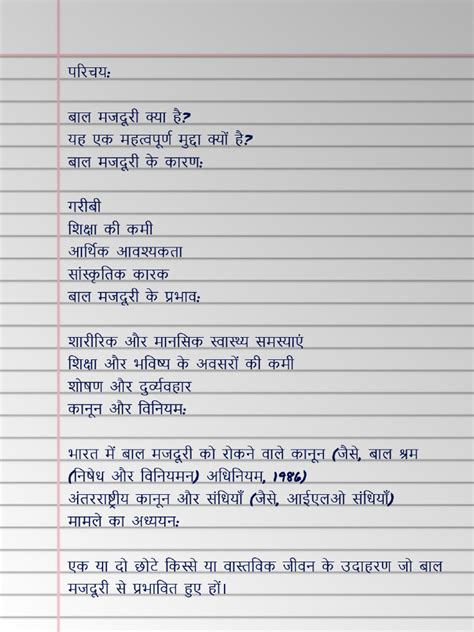 परिचय:
बाल मजदूरी क्या है?
यह एक महत्वपूर्ण मुद्दा क्यों है?
बाल मजदूरी के कारण:
गरीबी
शिक्षा की कमी
आर्थिक आवश्यकता
सांस्कृतिक कारक
बाल मजदूरी के प्रभाव:
शारीरिक और मानसिक स्वास्थ्य समस्याएं
शिक्षा और भविष्य के अवसरों की कमी
शोषण और दुर्व्यवहार
कानून और विनियम:
भारत में बाल मजदूरी को रोकने वाले कानून (जैसे, बाल श्रम
(निषेध और विनियमन) अधिनियम, 1986)
अंतरराष्ट्रीय कानून और संधियाँ (जैसे, आईएलओ संधियाँ)
मामले का अध्ययन:
एक या दो छोटे किस्से या वास्तविक जीवन के उदाहरण जो बाल
मजदूरी से प्रभावित हुए हों।